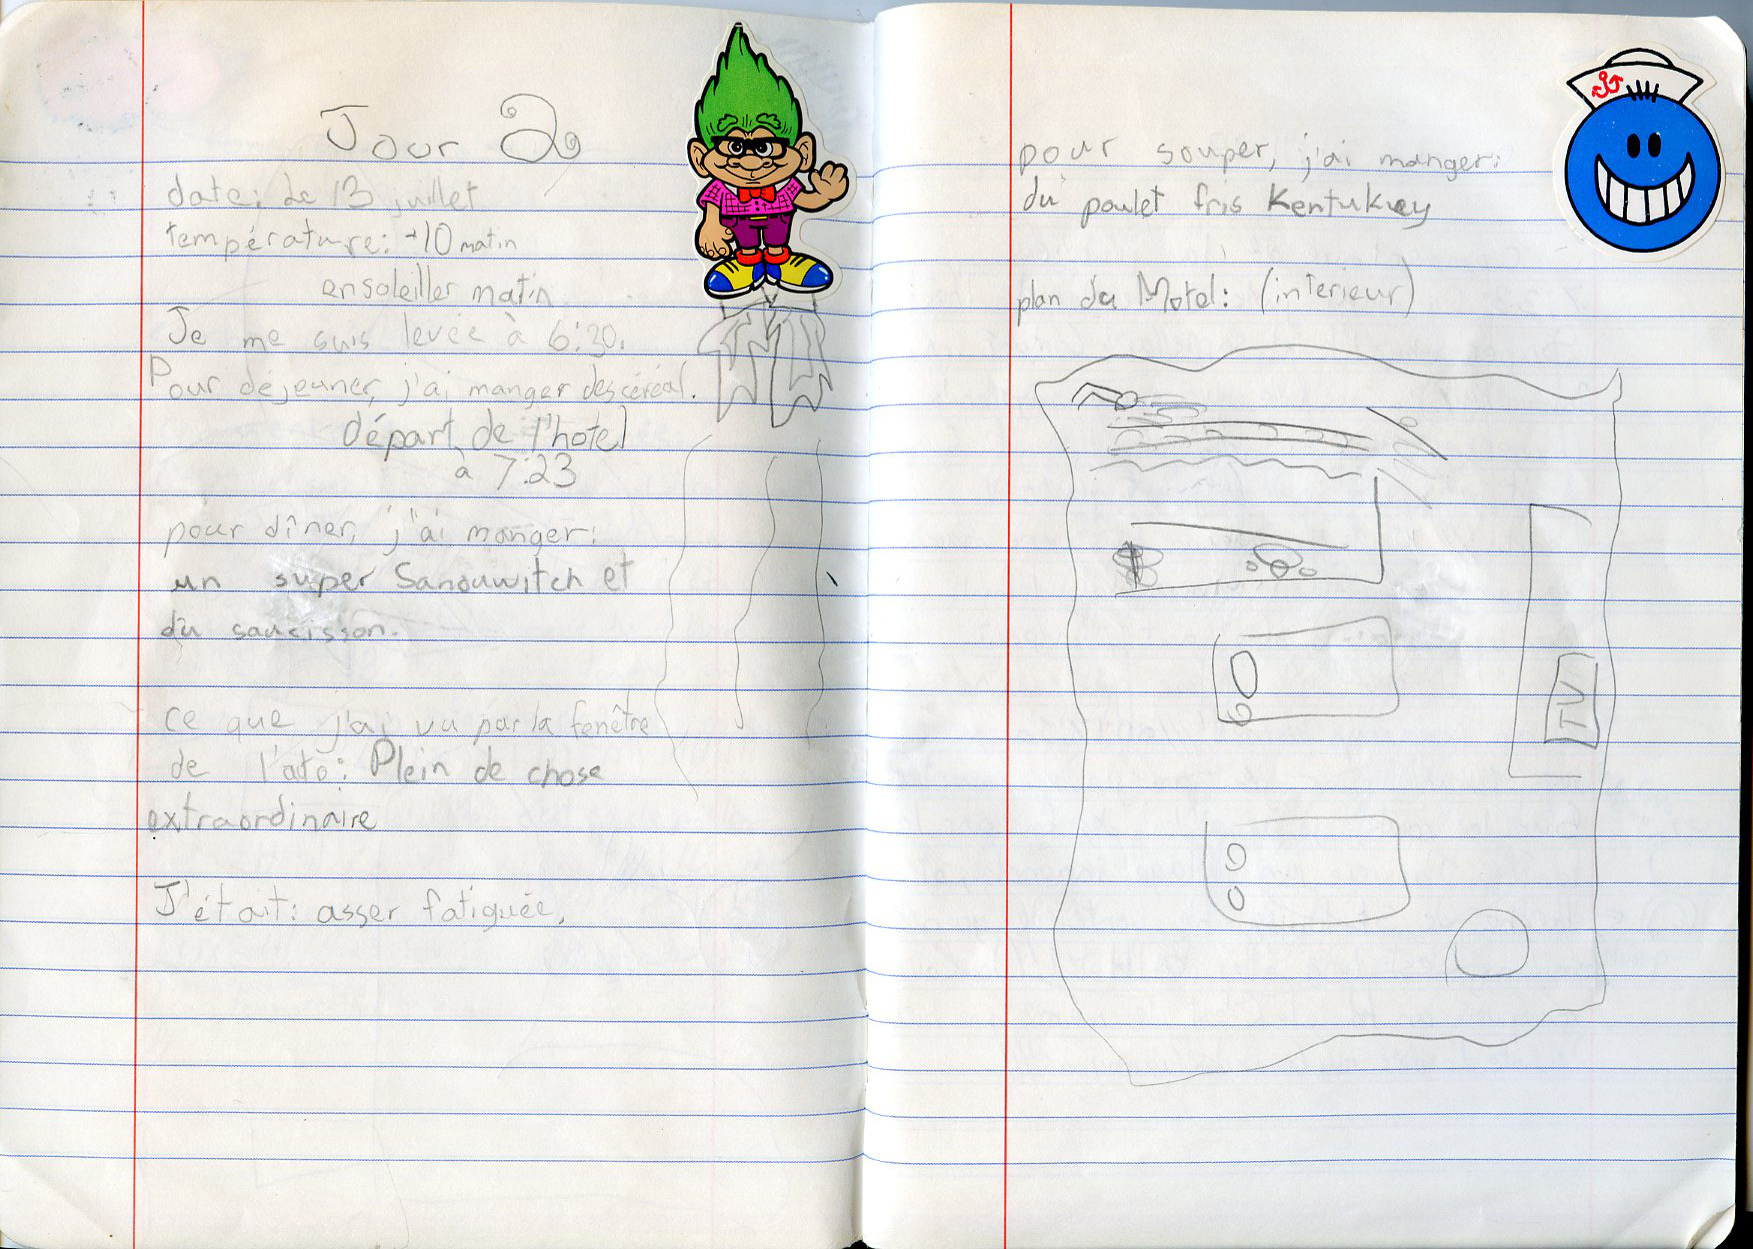 Jour 2
date: Le 13 juillet
température: +10 matin
ensoleiller matin
Je me suis levée à 6:30.
Pour déjeuner, j'ai manger des céréal.
départ de l'hotel
à 7:23
pour dîner, j'ai manger:
un super Sandwitch et
du saucisson.
ce que j'ai vu par la fenêtre
de l'ato: Plein de chose
extraordinaire
J'était: asser fatiguée,
pour souper, j'ai manger:
du poulet fris Kentukey
plan du Motel: (interieur)
TV